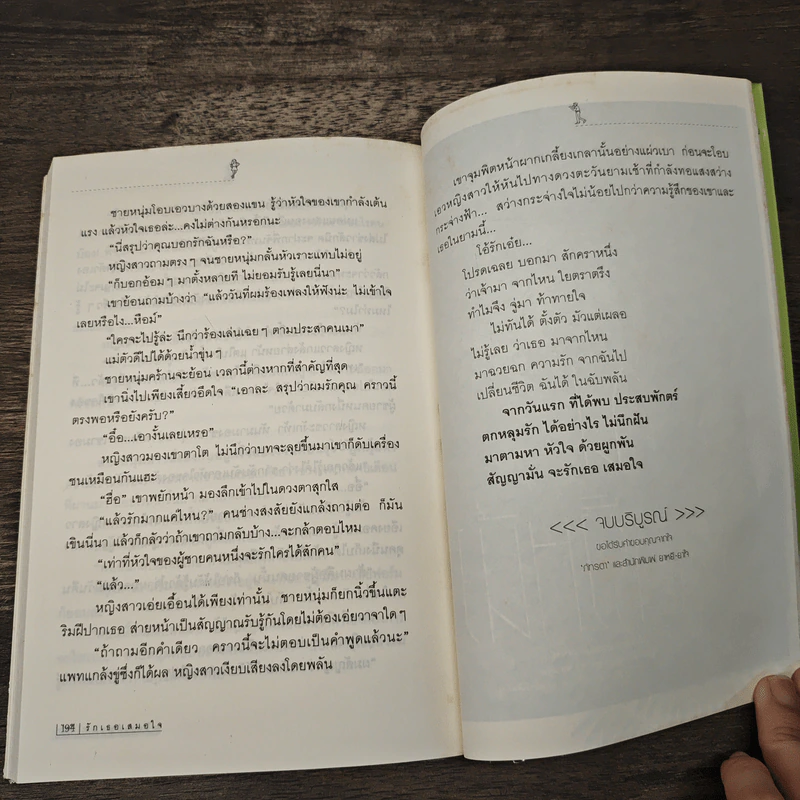 ชายหนุ่มโอบเอวบางด้วยสองแขน รู้ว่าหัวใจของเขากำลังเต้น
แรง แล้วหัวใจเธอล่ะ...คงไม่ต่างกันหรอกนะ
“นี่สรุปว่าคุณบอกรักฉันหรือ?”
หญิงสาวถามตรงๆ จนชายหนุ่มกลั้นหัวเราะแทบไม่อยู่
“ก็บอกอ้อมๆ มาตั้งหลายที ไม่ยอมรับรู้เลยนี่นา”
เขาย้อนถามบ้างว่า “แล้ววันที่ผมร้องเพลงให้ฟังน่ะ ไม่เข้าใจ
เลยหรือไง...หือม์”
“ใครจะไปรู้ล่ะ นึกว่าร้องเล่นเฉยๆ ตามประสาคนเมา”
แม่ตัวดีไปได้ด้วยน้ำขุ่นๆ
ชายหนุ่มคร้านจะย้อน เวลานี้ต่างหากที่สำคัญที่สุด
เขานิ่งไปเพียงเสี้ยวอึดใจ “เอาละ สรุปว่าผมรักคุณ คราวนี้
ตรงพอหรือยังครับ?”
“อื้อ...เอางั้นเลยเหรอ”
หญิงสาวมองเขาตาโต ไม่นึกว่าบทจะลุยขึ้นมาเขาก็ดับเครื่อง
ชนเหมือนกันแฮะ
“ฮื่อ” เขาพยักหน้า มองลึกเข้าไปในดวงตาสุกใส
“แล้วรักมากแค่ไหน?” คนช่างสงสัยยังแกล้งถามต่อ ก็มัน
เขินนี่นา แล้วก็กลัวว่าถ้าเขาถามกลับบ้าง...จะกล้าตอบไหม
“เท่าที่หัวใจของผู้ชายคนหนึ่งจะรักใครได้สักคน”
“แล้ว...”
หญิงสาวเอ่ยเอื้อนได้เพียงเท่านั้น ชายหนุ่มก็ยกนิ้วขึ้นแตะ
ริมฝีปากเธอ ส่ายหน้าเป็นสัญญาณรับรู้กันโดยไม่ต้องเอ่ยวาจาใดๆ
“ถ้าถามอีกคำเดียว คราวนี้จะไม่ตอบเป็นคำพูดแล้วนะ”
แพทแกล้งขู่ซึ่งก็ได้ผล หญิงสาวเงียบเสียงลงโดยพลัน
194 | รักเธอเสมอใจ
เขาจุมพิตหน้าผากเกลี้ยงเกลานั้นอย่างแผ่วเบา ก่อนจะโอบ
เอวหญิงสาวให้หันไปทางดวงตะวันยามเช้าที่กำลังทอแสงสว่าง
กระจ่างฟ้า... สว่างกระจ่างใจไม่น้อยไปกว่าความรู้สึกของเขาและ
เธอในยามนี้...
โอ้รักเอ๋ย...
โปรดเฉลย บอกมา สักคราหนึ่ง
ว่าเจ้ามา จากไหน ใยตราตรึง
ทำไมจึง จู่มา ท้าทายใจ
ไม่ทันได้ ตั้งตัว มัวแต่เผลอ
ไม่รู้เลย ว่าเธอ มาจากไหน
มาฉวยฉก ความรัก จากฉันไป
เปลี่ยนชีวิต ฉันได้ ในฉับพลัน
จากวันแรก ที่ได้พบ ประสบพักตร์
ตกหลุมรัก ได้อย่างไร ไม่นึกฝัน
มาตามหา หัวใจ ด้วยผูกพัน
สัญญามั่น จะรักเธอ เสมอใจ
<<< จบบริบูรณ์ >>>
ขอได้รับคำขอบคุณจากใจ
"ภัทรดา" และสำนักพิมพ์ ยาหยี-ยาใจ